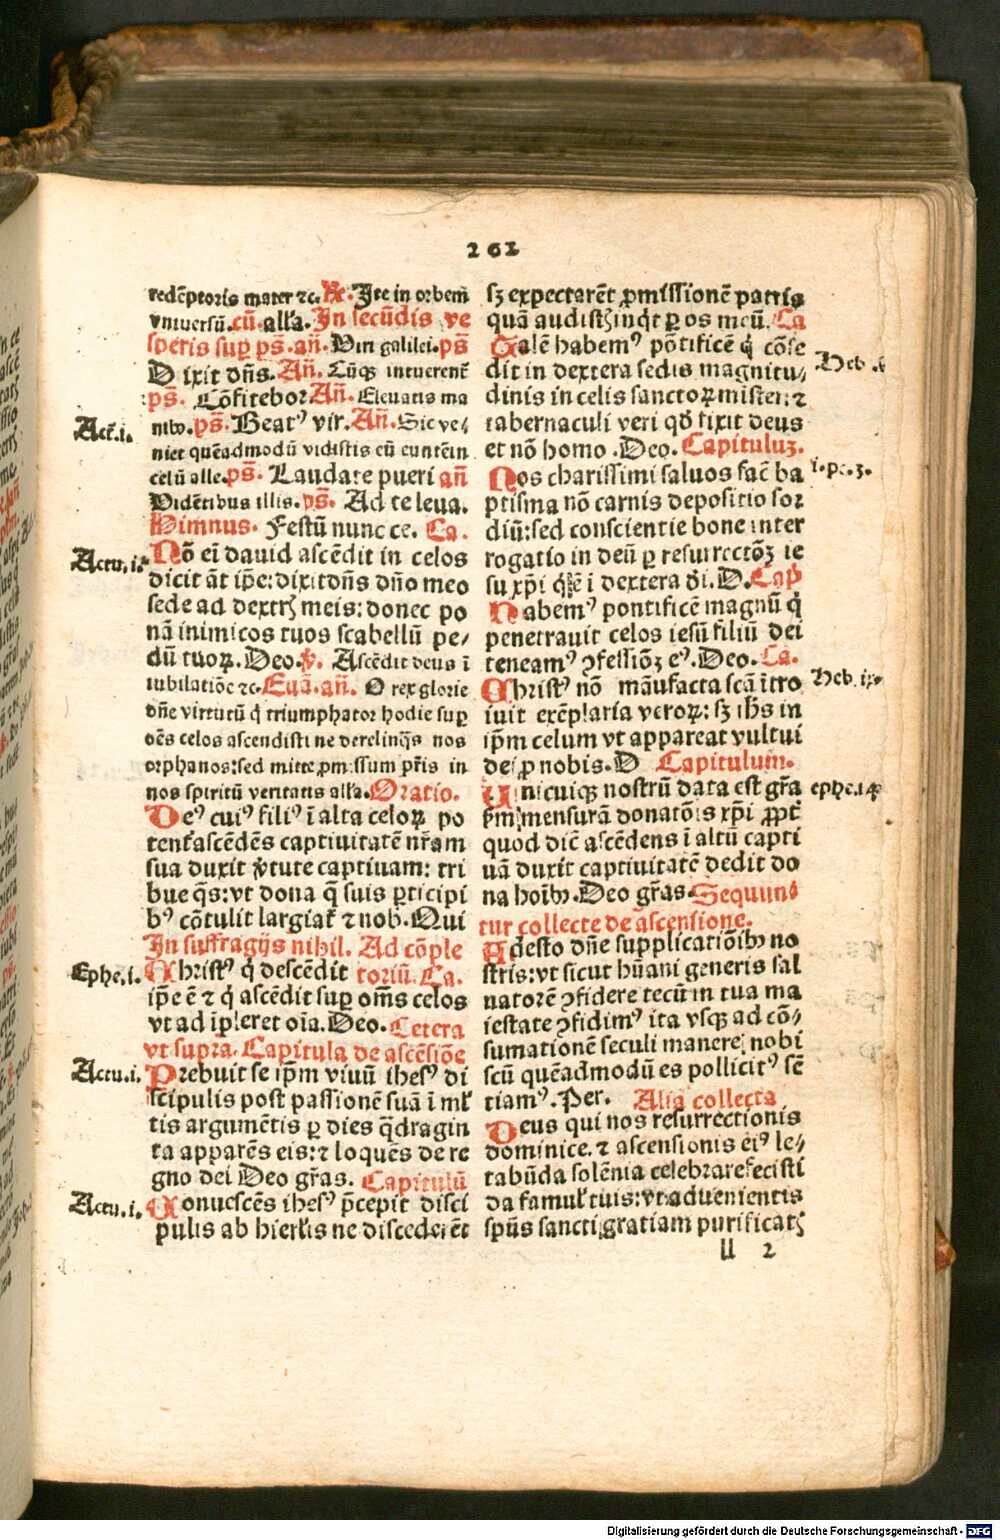 261
redēptoris mater ⁊c. R̃. Ite in orbem
vniuersū. cū. alla. In secūdis ve
speris suꝑ ps̄. añ. Viri galilei. ps̄
Dixit dn̄s. Añ. Cūqꝫ intuerent᷑
ps̄. Cōfitebor. Añ. Eleuatis ma
nibꝰ. ps̄. Beatꝰ vir. Añ. Sic ve⸗
Act. i.
niet quēadmodū vidistis eū euntē in
celū alle. ps̄. Laudate pueri añ
Vidētibus illis. ps̄. Ad te leua.
Himnus. Festū nunc ce. Ca.
Nō eī dauid ascēdit in celos
Actu. i.
dicit āt ip̄e: dixit dn̄s dn̄o meo
sede ad dextrꝭ meis: donec po
nā inimicos tuos scabellū pe⸗
dū tuoꝝ. Deo. v̄. Ascēdit deus ī
iubilatiōe ⁊c. Euā. añ. O rex glorie
dn̄e virtutū q̇ triumphator hodie suꝑ
oēs celos ascendisti ne derelinq̄s nos
orphanos: sed mitte ꝓmissum pr̄is in
nos spiritū veritatis alla. Oratio.
Deꝰ cuiꝰ filiꝰ ī alta celoꝝ po
tent᷑ ascēdēs captiuitatē nr̄am
sua duxit v̇tute captiuam: tri
bue q̄s: vt dona q̄ suis ꝑticipi
bꝰ cōtulit largiat᷑ ⁊ nob. Qui
In suffragijs nihil. Ad cōple
Christꝰ q̇ descēdit toriū. Ca.
Ephe. i.
ip̄e ē ⁊ q̇ ascēdit suꝑ om̄s celos
vt ad īpleret oīa. Deo. Cetera
vt supra. Capitula de ascēsiōe
Prebuit se ip̄m viuū ihesꝰ di
Actu. i.
scipulis post passionē suā ī ml᷑
tis argumētis ꝑ dies q̄dragin
ta apparēs eis: ⁊ loquēs de re
gno dei Deo gr̄as. Capitulū
Conuescēs ihesꝰ p̄cepit disci
Actu. i.
pulis ab hierl̄is ne discederēt
sꝫ expectarēt ꝓmissionē patris
quā audistꝭ inq̇t ꝑ os meū. Ca
Talē habemꝰ pōtificē q̇ cōse
dit in dextera sedis magnitu⸗
Heb.
dinis in celis sanctoꝝ mister. ⁊
tabernaculi veri qd̄ fixit deus
et nō homo. Deo. Capituluꝫ.
Nos charissimi saluos fac̄ ba
i. pe. 3.
ptisma nō carnis depositio sor
diū: sed conscientie bone inter
rogatio in deū ꝑ resurrectōꝫ ie
su xp̄i q̇ ē ī dextera dī. D. Cap̄
Habemꝰ pontificē magnū q̇
penetrauit celos iesū filiū dei
teneamꝰ ꝯfessiōꝫ eꝰ. Deo. Ca.
Christꝰ nō māufacta scā ītro
Heb. ix.
iuit exēplaria veroꝝ: sꝫ ih̄s in
ip̄m celum vt appareat vultui
dei ꝓ nobis. D Capitulum.
Unicuiqꝫ nostrū data est gr̄a
ephe. i4
ẜm mensurā donatōis xp̄i ꝓpt᷑
quod dic̄ ascēdens ī altū capti
uā duxit captiuitatē dedit do
na hoībꝰ. Deo gr̄as. Sequun⸗
tur collecte de ascensione.
Adesto dn̄e supplicatiōibꝰ no
stris: vt sicut hūani generis sal
uatorē ꝯfidere tecū in tua ma
iestate ꝯfidimꝰ ita vsqꝫ ad cō⸗
sumationē seculi manere nobi
scū quēadmodū es pollicitꝰ sē
tiamꝰ. Per. Alia collecta
Deus qui nos resurrectionis
dominice. ⁊ ascensionis eiꝰ le⸗
tabūda solēnia celebrare fecisti
da famul᷑ tuis: vt aduenientis
sp̄us sancti gratiam purificatꝭ
ll 2
Digitalisierung gefördert durch die Deutsche Forschungsgemeinschaft - DFG